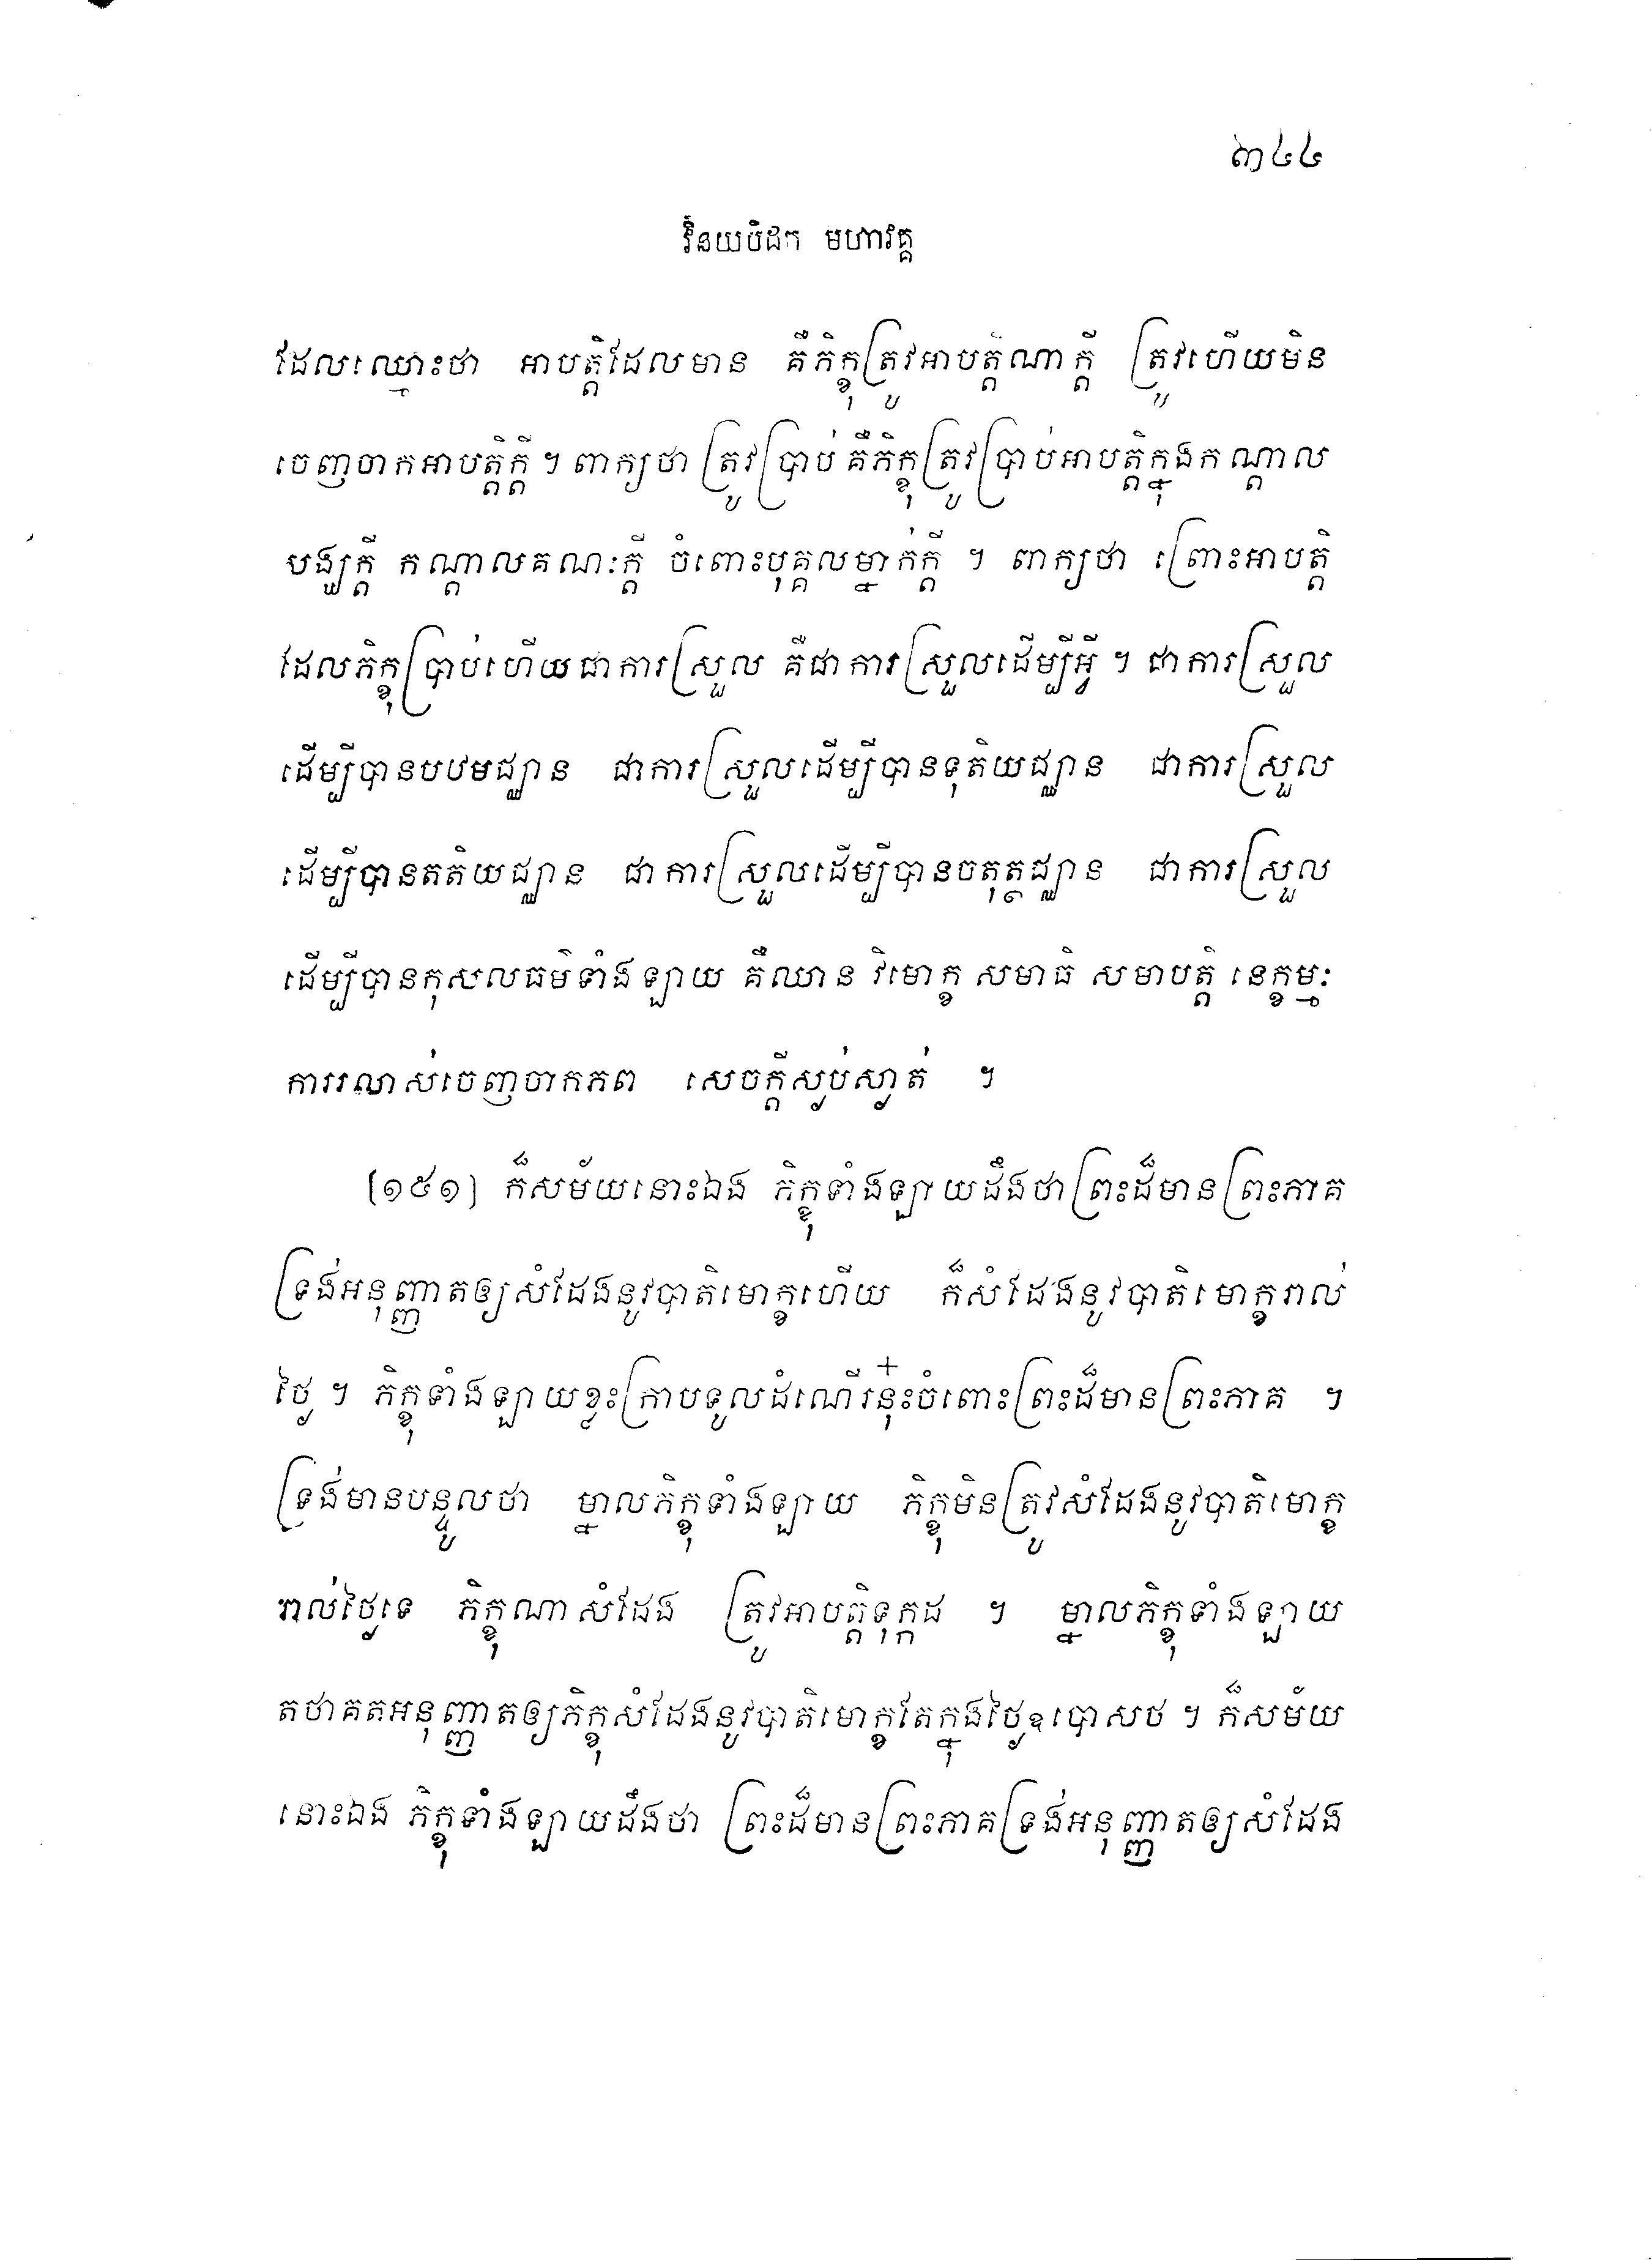 ៣៤៤
វិនយបិដក មហាវគ្គ
ដែលឈ្មោះថា អាបត្តិដែលមាន គឺភិក្ខុត្រូវអាបត្តិណាក្តី ត្រូវហើយមិន
ចេញចាកអាបត្តិក្តី ។ ពាក្យថា ត្រូវប្រាប់ គឺភិក្ខុត្រូវប្រាប់អាបត្តិក្នុងកណ្តាល
បង្ឃក្តី កណ្តាលគណៈក្តី ចំពោះបុគ្គលម្នាក់ក្តី ។ ពាក្យថា ព្រោះអាបត្តិ
ដែលភិក្ខុប្រាប់ហើយជាការស្រួល គឺជាការស្រួលដើម្បីអ្វី ។ ជាការស្រួល
ដើម្បីបានបឋមជ្ឈាន ជាការស្រួលដើម្បីបានទុតិយជ្ឈាន ជាការស្រួល
ដើម្បីបានតតិយជ្ឈាន ជាការស្រួលដើម្បីបានចតុត្ថជ្ឈាន ជាការស្រួល
ដើម្បីបានកុសលធម៌ទាំងឡាយ គឺឈាន វិមោក្ខ សមាធិ សមាបត្តិ នេក្ខម្មៈ
ការរលាស់ចេញចាកភព សេចក្តីស្ងប់ស្ងាត់ ។
(១៥១) ក៏សម័យនោះឯង ភិក្ខុទាំងឡាយដឹងថាព្រះដ៏មានព្រះភាគ
ទ្រង់អនុញ្ញាតឲ្យសំដែងនូវបាតិមោក្ខហើយ ក៏សំដែងនូវបាតិមោក្ខរាល់
ថ្ងៃ ។ ភិក្ខុទាំងឡាយខ្លះក្រាបទូលដំណើរនុ៎ះចំពោះព្រះដ៏មានព្រះភាគ ។
ទ្រង់មានបន្ទូលថា ម្នាលភិក្ខុទាំងឡាយ ភិក្ខុមិនត្រូវសំដែងនូវបាតិមោក្ខ
រាល់ថ្ងៃទេ ភិក្ខុណាសំដែង ត្រូវអាបត្តិទុក្កដ ។ ម្នាលភិក្ខុទាំងឡាយ
តថាគតអនុញ្ញាតឲ្យភិក្ខុសំដែងនូវបាតិមោក្ខតែក្នុងថ្ងៃឧបោសថ ។ ក៏សម័យ
នោះឯង ភិក្ខុទាំងឡាយដឹងថា ព្រះដ៏មានព្រះភាគទ្រង់អនុញ្ញាតឲ្យសំដែង